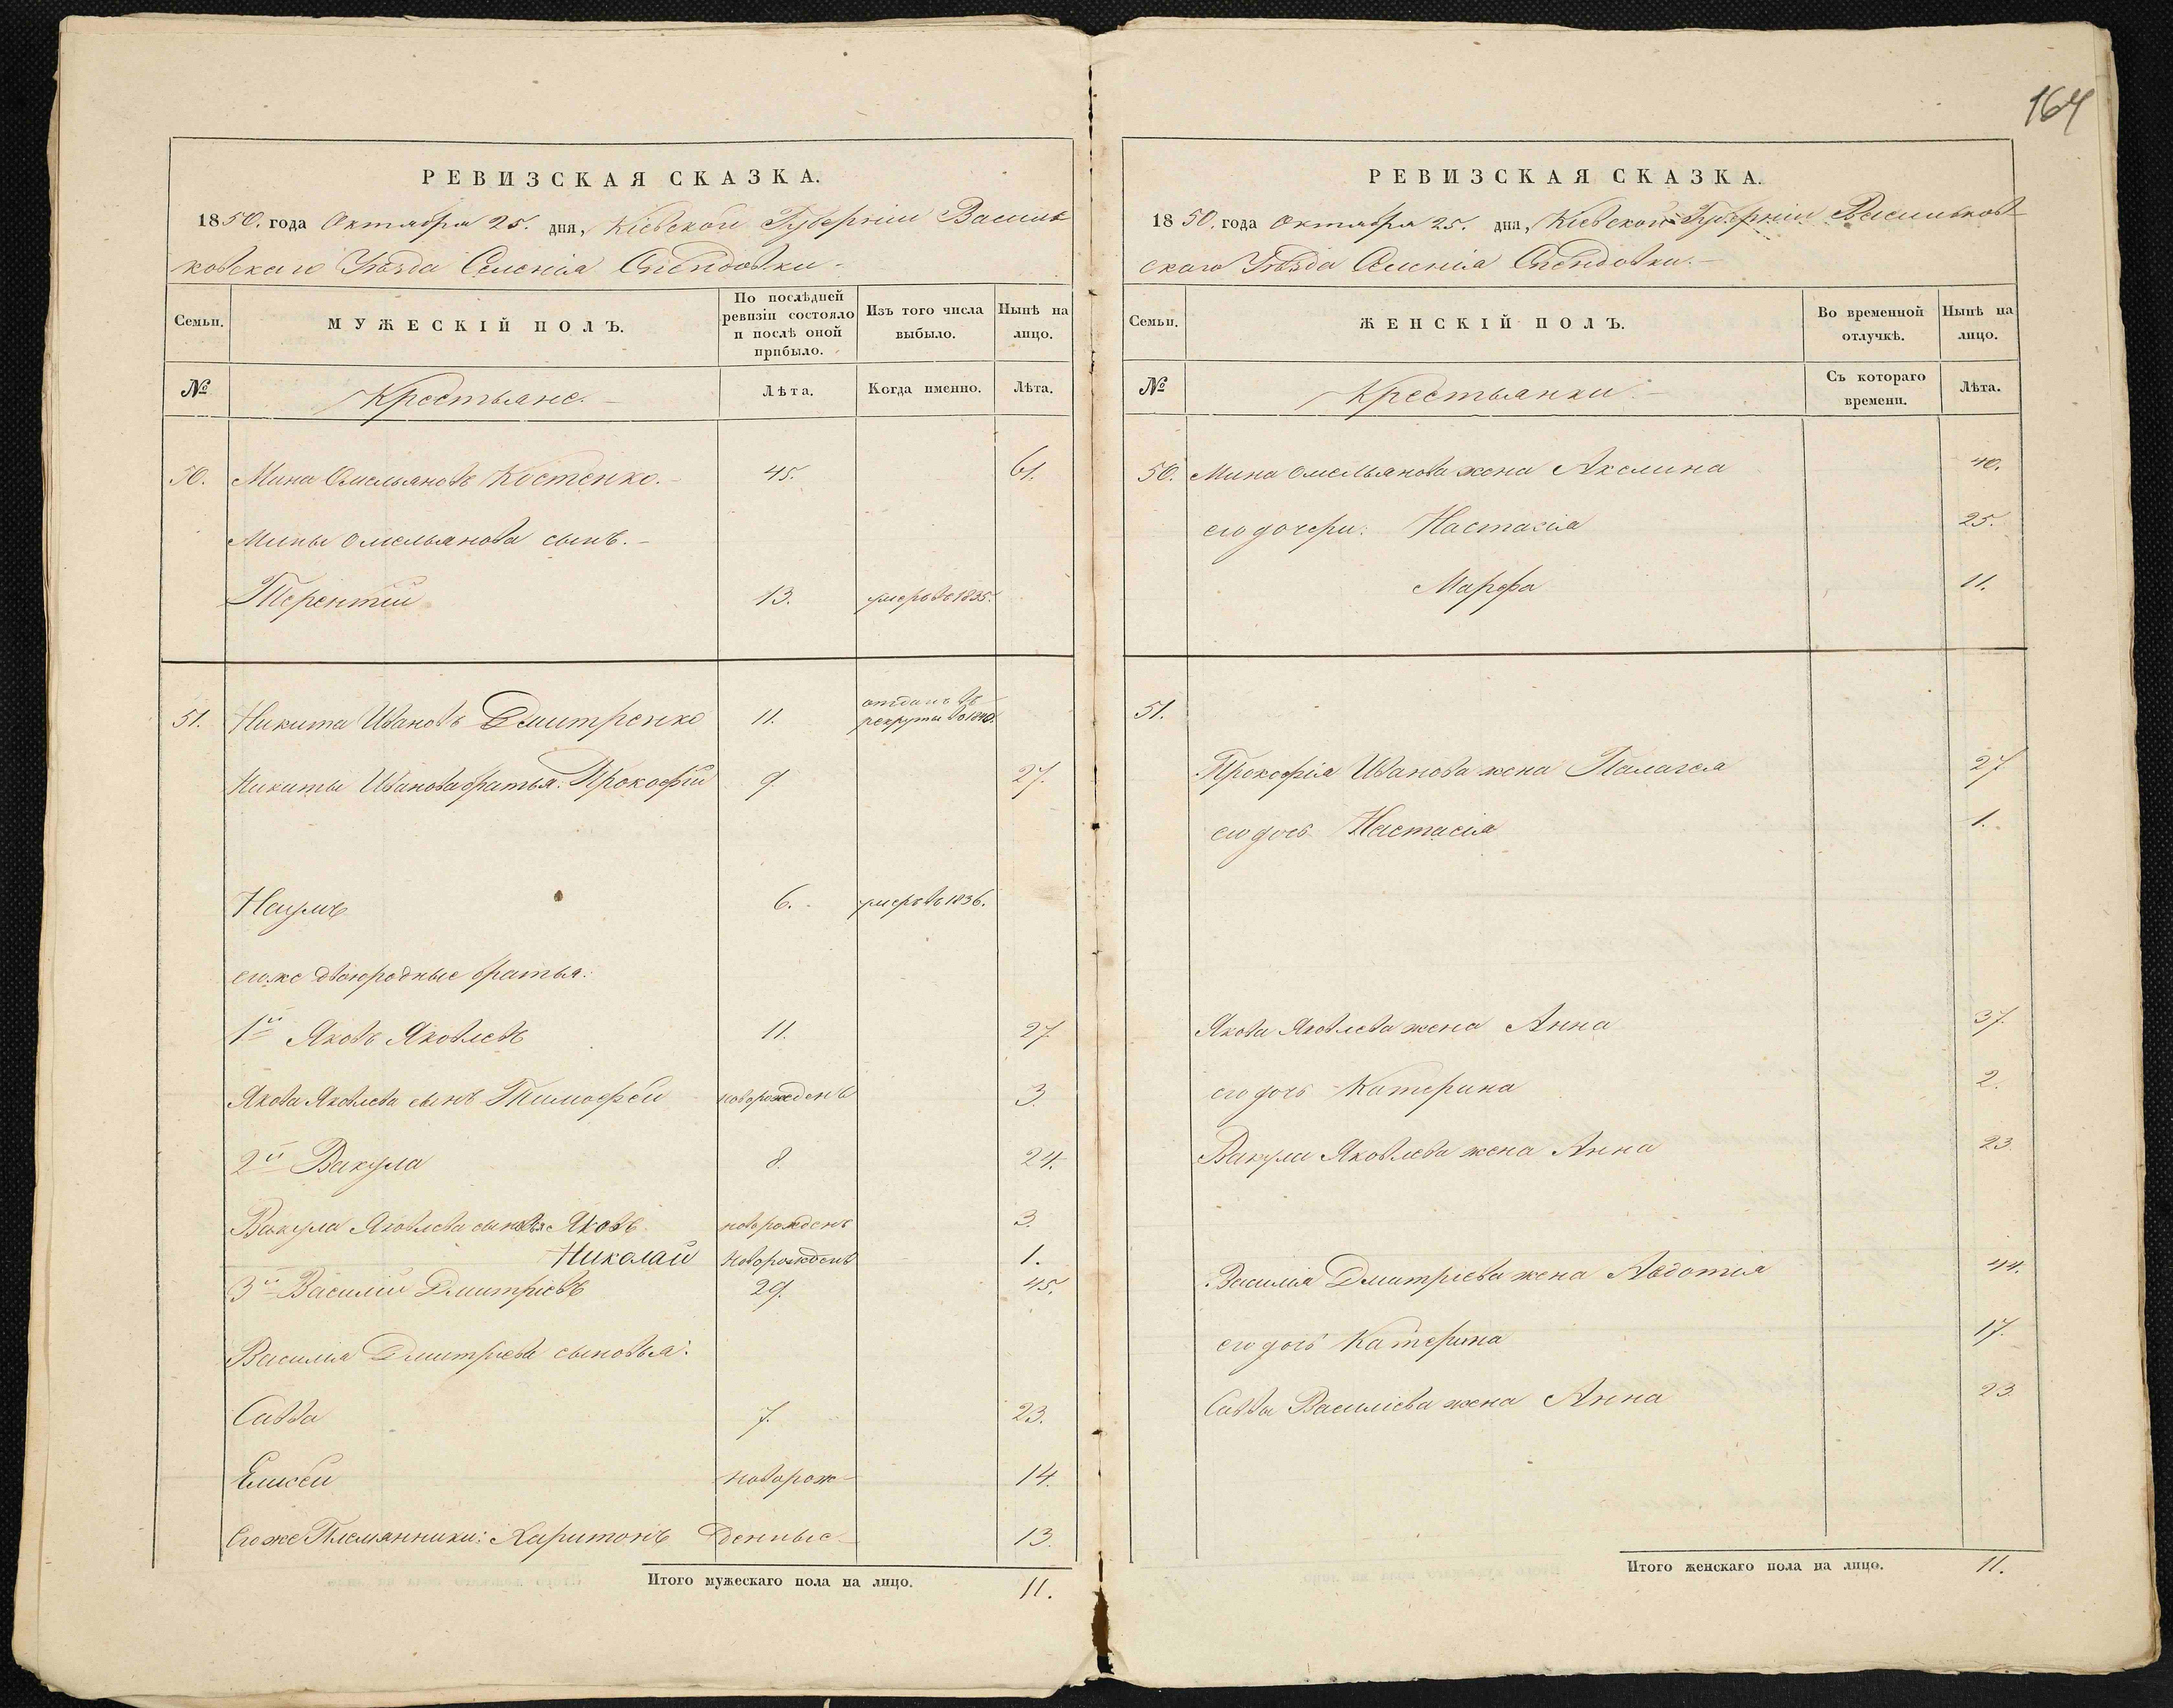 164
РЕВИЗСКАЯ СКАЗКА.
1850. года Октября 25. дня, Кіевской Губерніи Василь
ковскаго Уѣзда Селенія
Семьи.
МУЖЕСКІЙ ПОЛЪ.
По послѣдней ревизіи состояло и послѣ оной прибыло.
Изъ того числа выбыло.
Нынѣ на лицо.
№
Крестьяне.
Лѣта.
Когда именно.
Лѣта.
50. Мина Омельяновъ Костенко. 45. 61.
Мины Омельянова сынъ.
Терентій 13. умеръ въ 1835.
51. Никита Ивановъ Дмитренко 11. отданъ въ
рекруты въ 1840.
Никиты Иванова братья: Прокофій 9. 27.
Наумъ 6. умеръ въ 1836.
его же двоюродные братья:
1й Яковъ Яковлевъ 11. 27.
Якова Яковлева сынъ Тимофей новорожденъ 3.
2й Вакула 8. 24.
Вакула Яковлева сыновья Яковъ новорожденъ 3.
Николай новорожденъ 1.
3й Василій Дмитріевъ 29. 45.
Василія Дмитріева сыновья:
Савва 7. 23.
Елисей новорож- 14.
Его же Племянники: Харитонъ денные 13.
Итого мужескаго пола на лицо. 11.
РЕВИЗСКАЯ СКАЗКА.
1850. года Октября 25. дня, Кіевской Губерніи Васильков
скаго Уѣзда Селенія
Семьи.
ЖЕНСКІЙ ПОЛЪ.
Во временной отлучкѣ.
Нынѣ на лицо.
№
Крестьянки.
Съ котораго времени.
Лѣта.
50. Мина Омельянова жена Акелина 40.
его дочери: Настасія 25.
Марфа 11.
51.
Прокофія Иванова жена Палагея 27
его дочь Настасія 1.
Якова Яковлева жена Анна 37.
его дочь Катерина 2.
Вакула Яковлева жена Анна 23.
Василія Дмитріева жена Авдотія 44.
его дочь Катерина 17.
Саввы Василіева жена Анна 23.
Итого женскаго пола на лицо. 11.